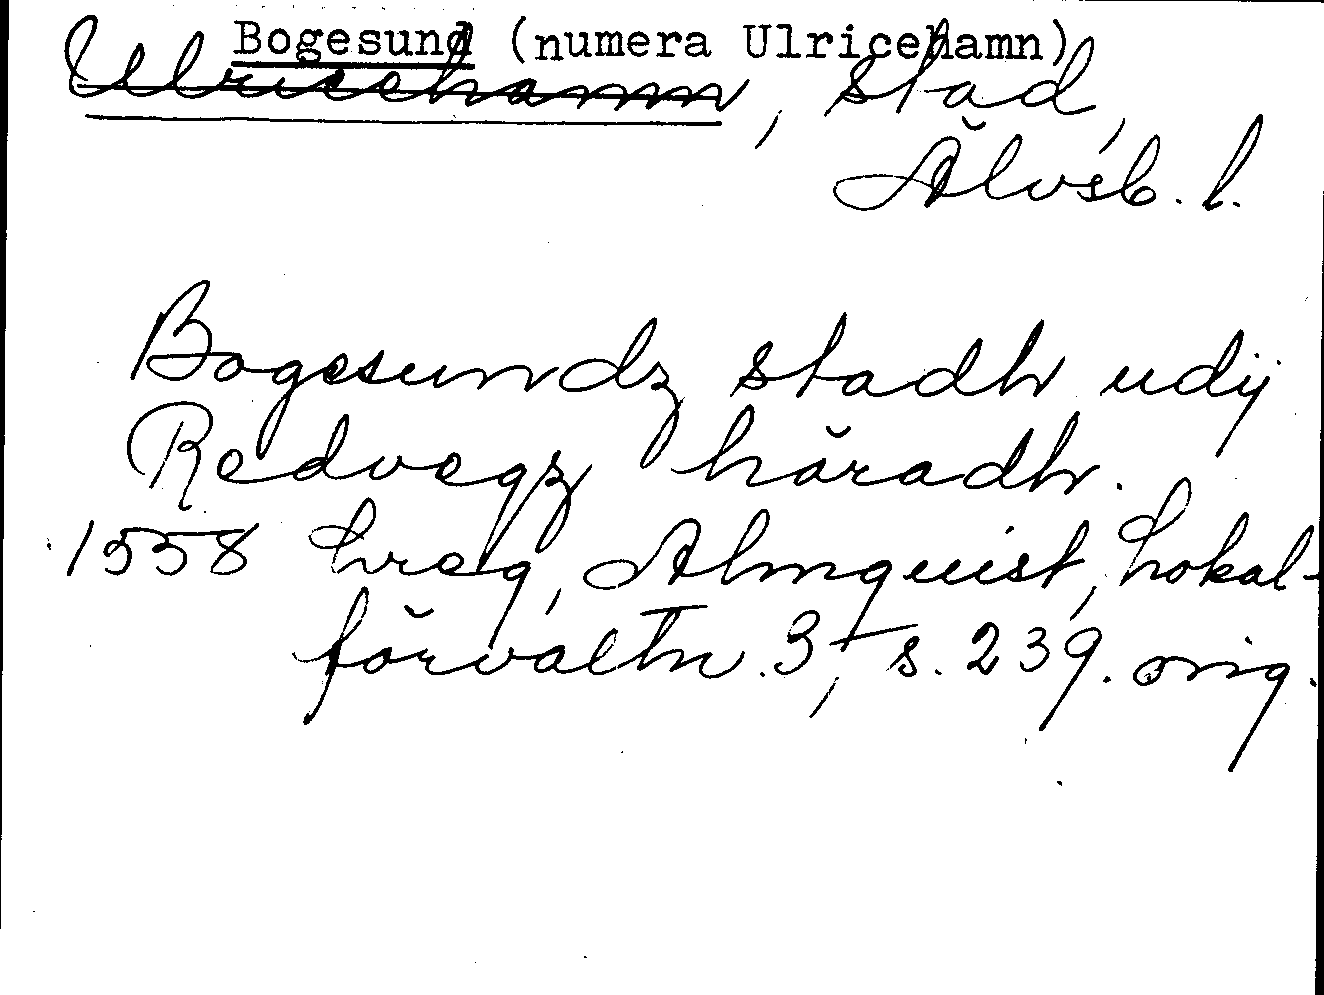 Bogesund (numera Ulricehamn)
Ulricehamn, stad,
Älvsb. l.
Bogesundz stadh udij
Redvegz häradh.
1558 Lreg, Almquist, Lokal-
förvaltn. 3, s. 239. orig.